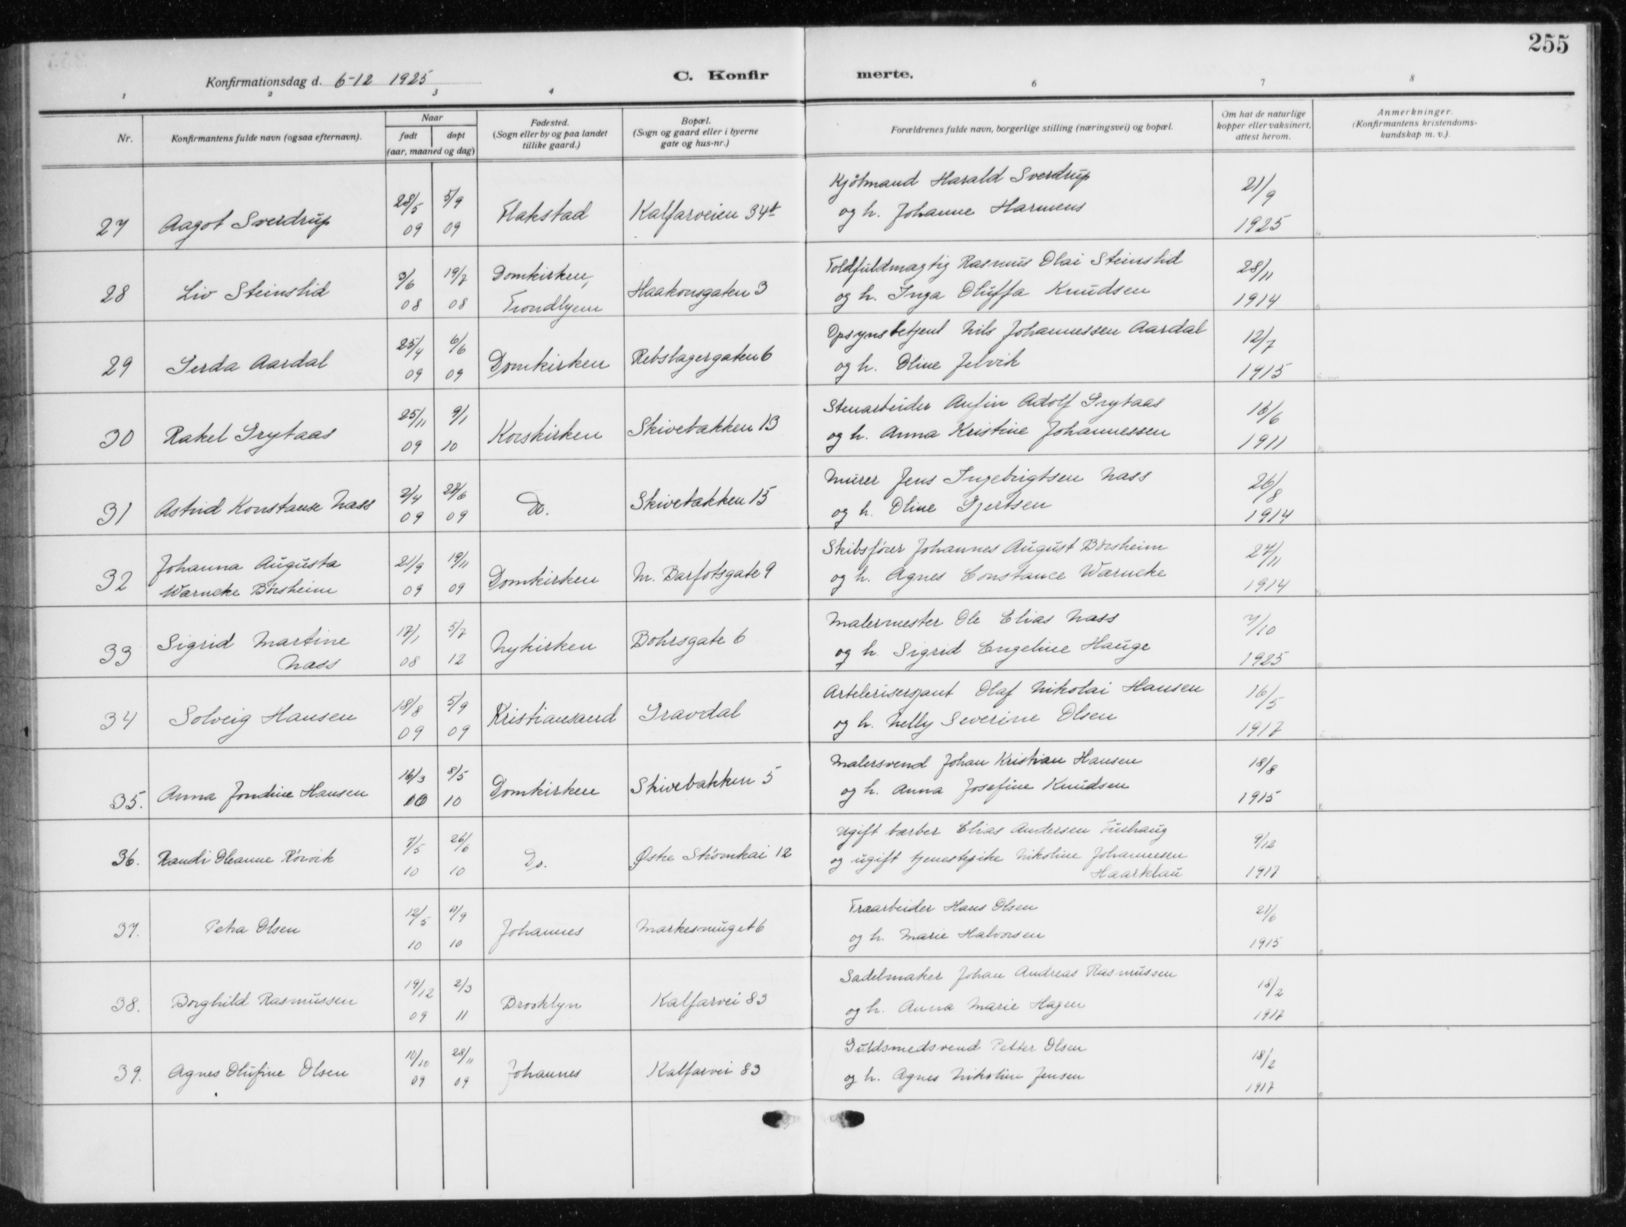 255
Konfirmationsdag d. 6-12 1925
C. Konfirmerte.
1 2 3 4 6 7 8
Nr.
Konfirmantens fulde navn (ogsaa efternavn).
Naar
født
døpt
(aar, maaned og dag)
Fødested.
(Sogn eller by og paa landet
tillike gaard.)
Bopæl.
(Sogn og gaard eller i byerne
gate og hus-nr.)
Forældrenes fulde navn, borgerlige stilling (næringsvei) og bopæl.
Om hat de naturlige
kopper eller vaksinert,
attest herom.
Anmerkninger.
(Konfirmantens kristendoms-
kundskap m. v.).
27 Aagot Sverdrup 28/5 09 5/9 09 Flakstad Kalfarveien 34 Kjøbmand Harald Sverdrup
og h. Johanne Harmens 21/9 1925
28 Liv Steinslid 3/6 08 19/7 08 Domkirken, Trondhjem Haakonsgaten 3 Toldfuldmægtig Rasmus Olai Steinslid
og h. Inga Oluffa Knudsen 28/11 1914
29 Gerda Aardal 25/4 09 6/6 09 Domkirken Rebslagergaten 6 Opsynsbetjent Nils Johannessen Aardal
og h. Oline Jelvik 12/7 1915
30 Rakel Grytaas 25/11 09 9/1 10 Korskirken Skivebakken 13 Stenarbeider Anfin Adolf Grytaas
og h. Anna Kristine Johannessen 18/6 1911
31 Astrid Konstanse Næss 2/4 09 28/6 09 Do. Skivebakken 15 Murer Jens Ingebrigtsen Næss
og h. Oline Gjertsen 26/8 1914
32 Johanna Augusta
Warncke Børsheim 21/9 09 19/11 09 Domkirken N. Barfotsgate 9 Skibsfører Johannes August Børsheim
og h. Agnes Constance Warncke 27/11 1914
33 Sigrid Martine
Næss 17/1 08 5/7 12 Nykirken Bohrsgate 6 Malermester Ole Elias Næss
og h. Sigrid Engeline Hauge 7/10 1925
34 Solveig Hansen 18/8 09 5/9 09 Kristiansand Gravdal Artelerisersjant Olaf Nikolai Hansen
og h. Nelly Severine Olsen 16/5 1917
35. Anna Jondine Hansen 16/3 10 8/5 10 Domkirken Skivebakken 5 Malersvend Johan Kristian Hansen
og h. Anna Josefine Knudsen 18/8 1915
36. Randi Oleanne Rörvik 7/5 10 26/6 10 Do. Østre Strømkai 12 Ugift barber Elias Andersen
og ugift tjenestepike Nikoline Johannesen
Haarklau 9/12 1917
37. Petra Olsen 12/5 10 4/9 10 Johannes Markesmuget 6 Træarbeider Hans Olsen
og h. Marie Halvorsen 21/6 1915
38. Borghild Rasmussen 19/12 09 2/3 11 Brooklyn Kalfarvei 83 Sadelmaker Johan Andreas Rasmussen
og h. Anna Marie Hagen 18/2 1917
39. Agnes Olufine Olsen 10/10 09 28/11 09 Johannes Kalfarvei 83 Guldsmedsvend Petter Olsen
og h. Agnes Nikoline Jensen 18/2 1917